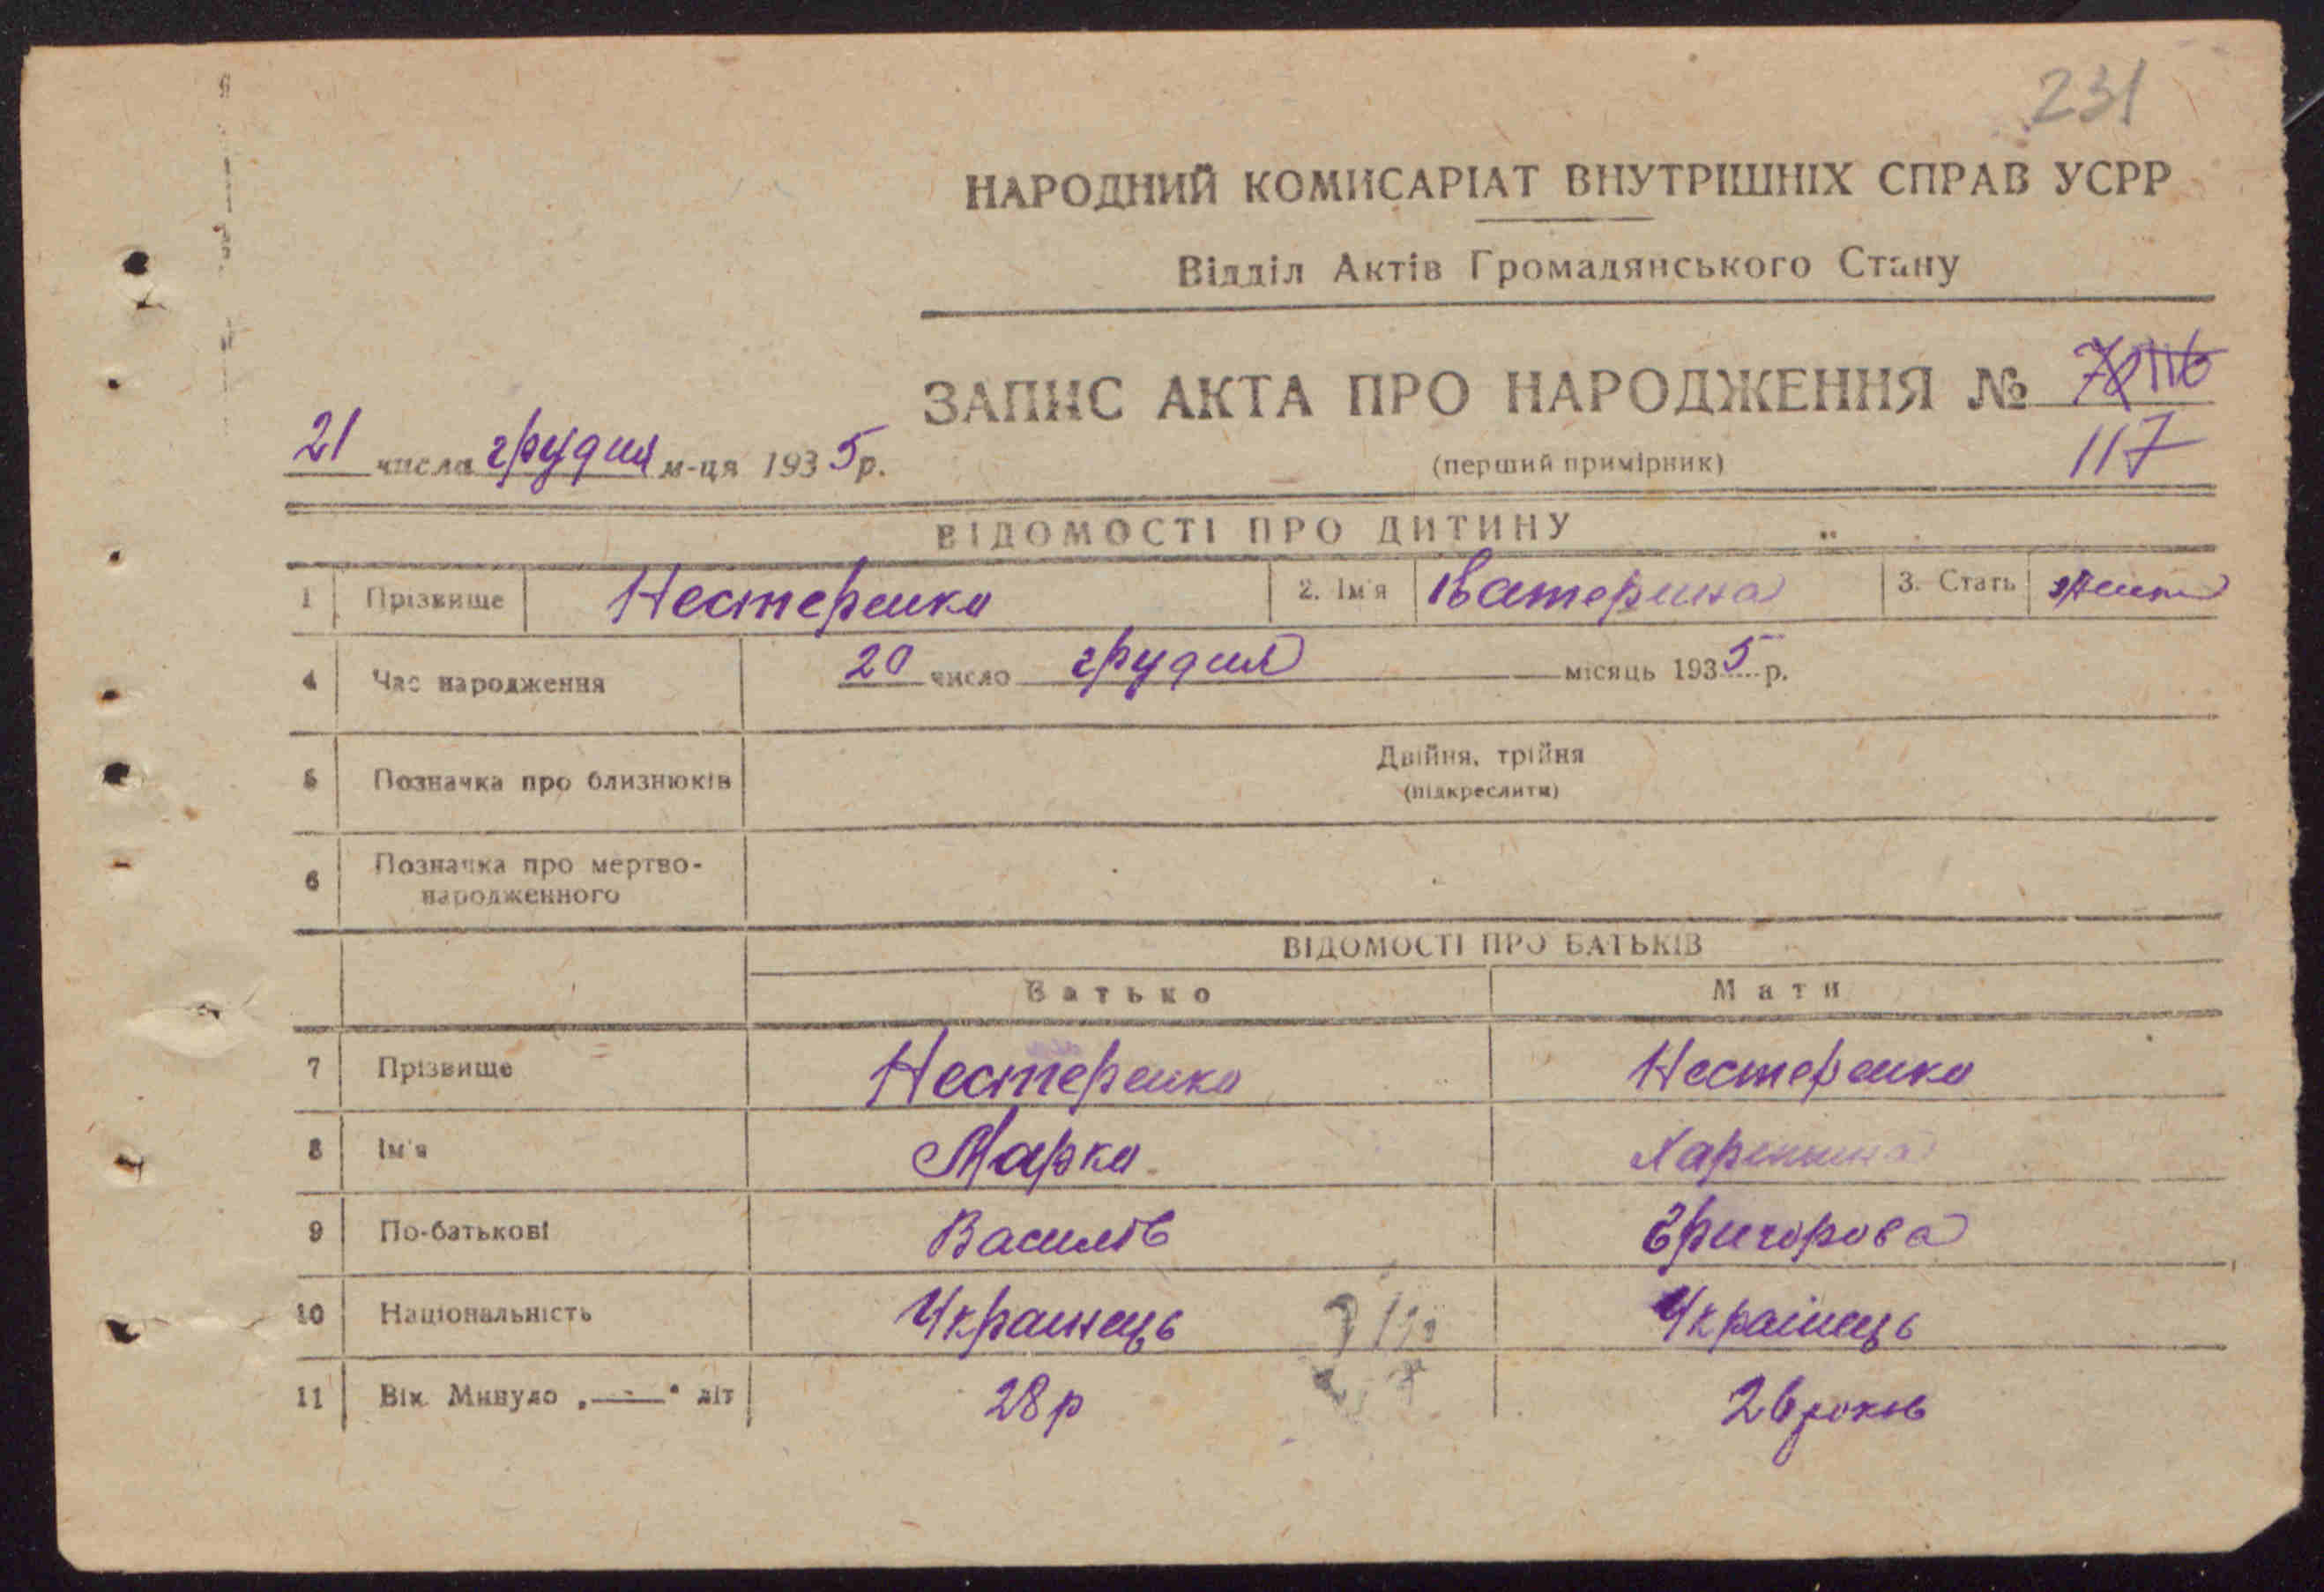 231
НАРОДНИЙ КОМИСАРІАТ ВНУТРІШНІХ СПРАВ УСРР
Відділ Актів Громадянського Стану
ЗАПИС АКТА ПРО НАРОДЖЕННЯ №
117
21 числа грудня м-ця 1935 р.
(перший примірник)
ВІДОМОСТІ ПРО ДИТИНУ
1 Прізвище Нестеренко 2. Ім'я Катерина 3. Стать
4 Час народження 20 число грудня місяць 1935 р.
5 Позначка про близнюків Двійня, трійня
(підкреслити)
6 Позначка про мертво-
народженного
ВІДОМОСТІ ПРО БАТЬКІВ
Батько Мати
7 Прізвище Нестеренко Нестеренко
8 Ім'я Марко
9 По-батькові Василів Григорова
10 Національність Українець Українець
11 Вік Минуло „—“ літ 28 р 26 років